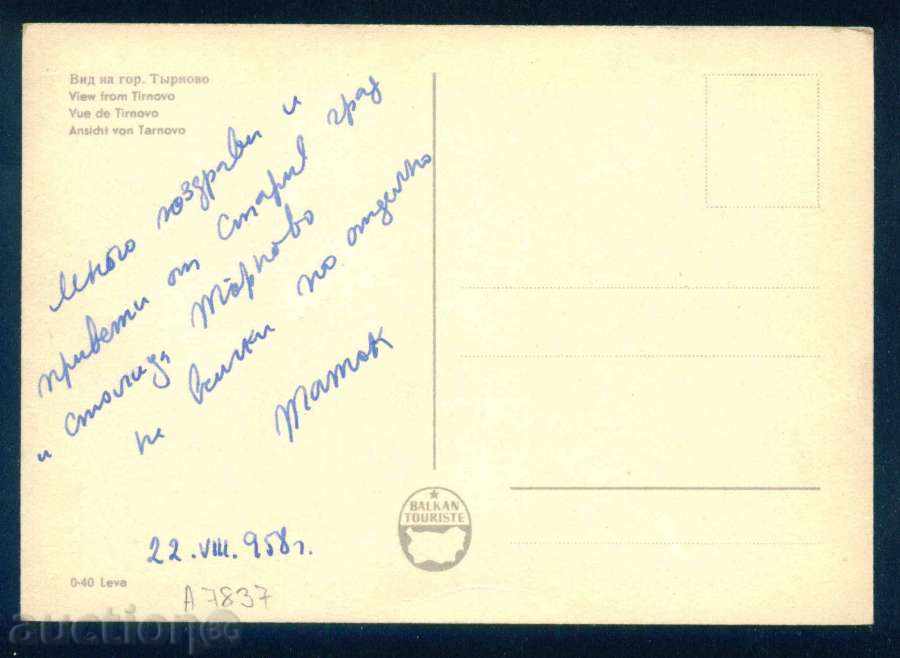 Вид на гор. Тырново
View from Tirnovo
Vue de Tirnovo
Ansicht von Tarnovo
Много поздрави и
привети от стария град
и столица Търново
на всички по отделно
Таток
22.VIII.958 г.
BALKAN
TOURISTE
0-40 Leva
A 7837